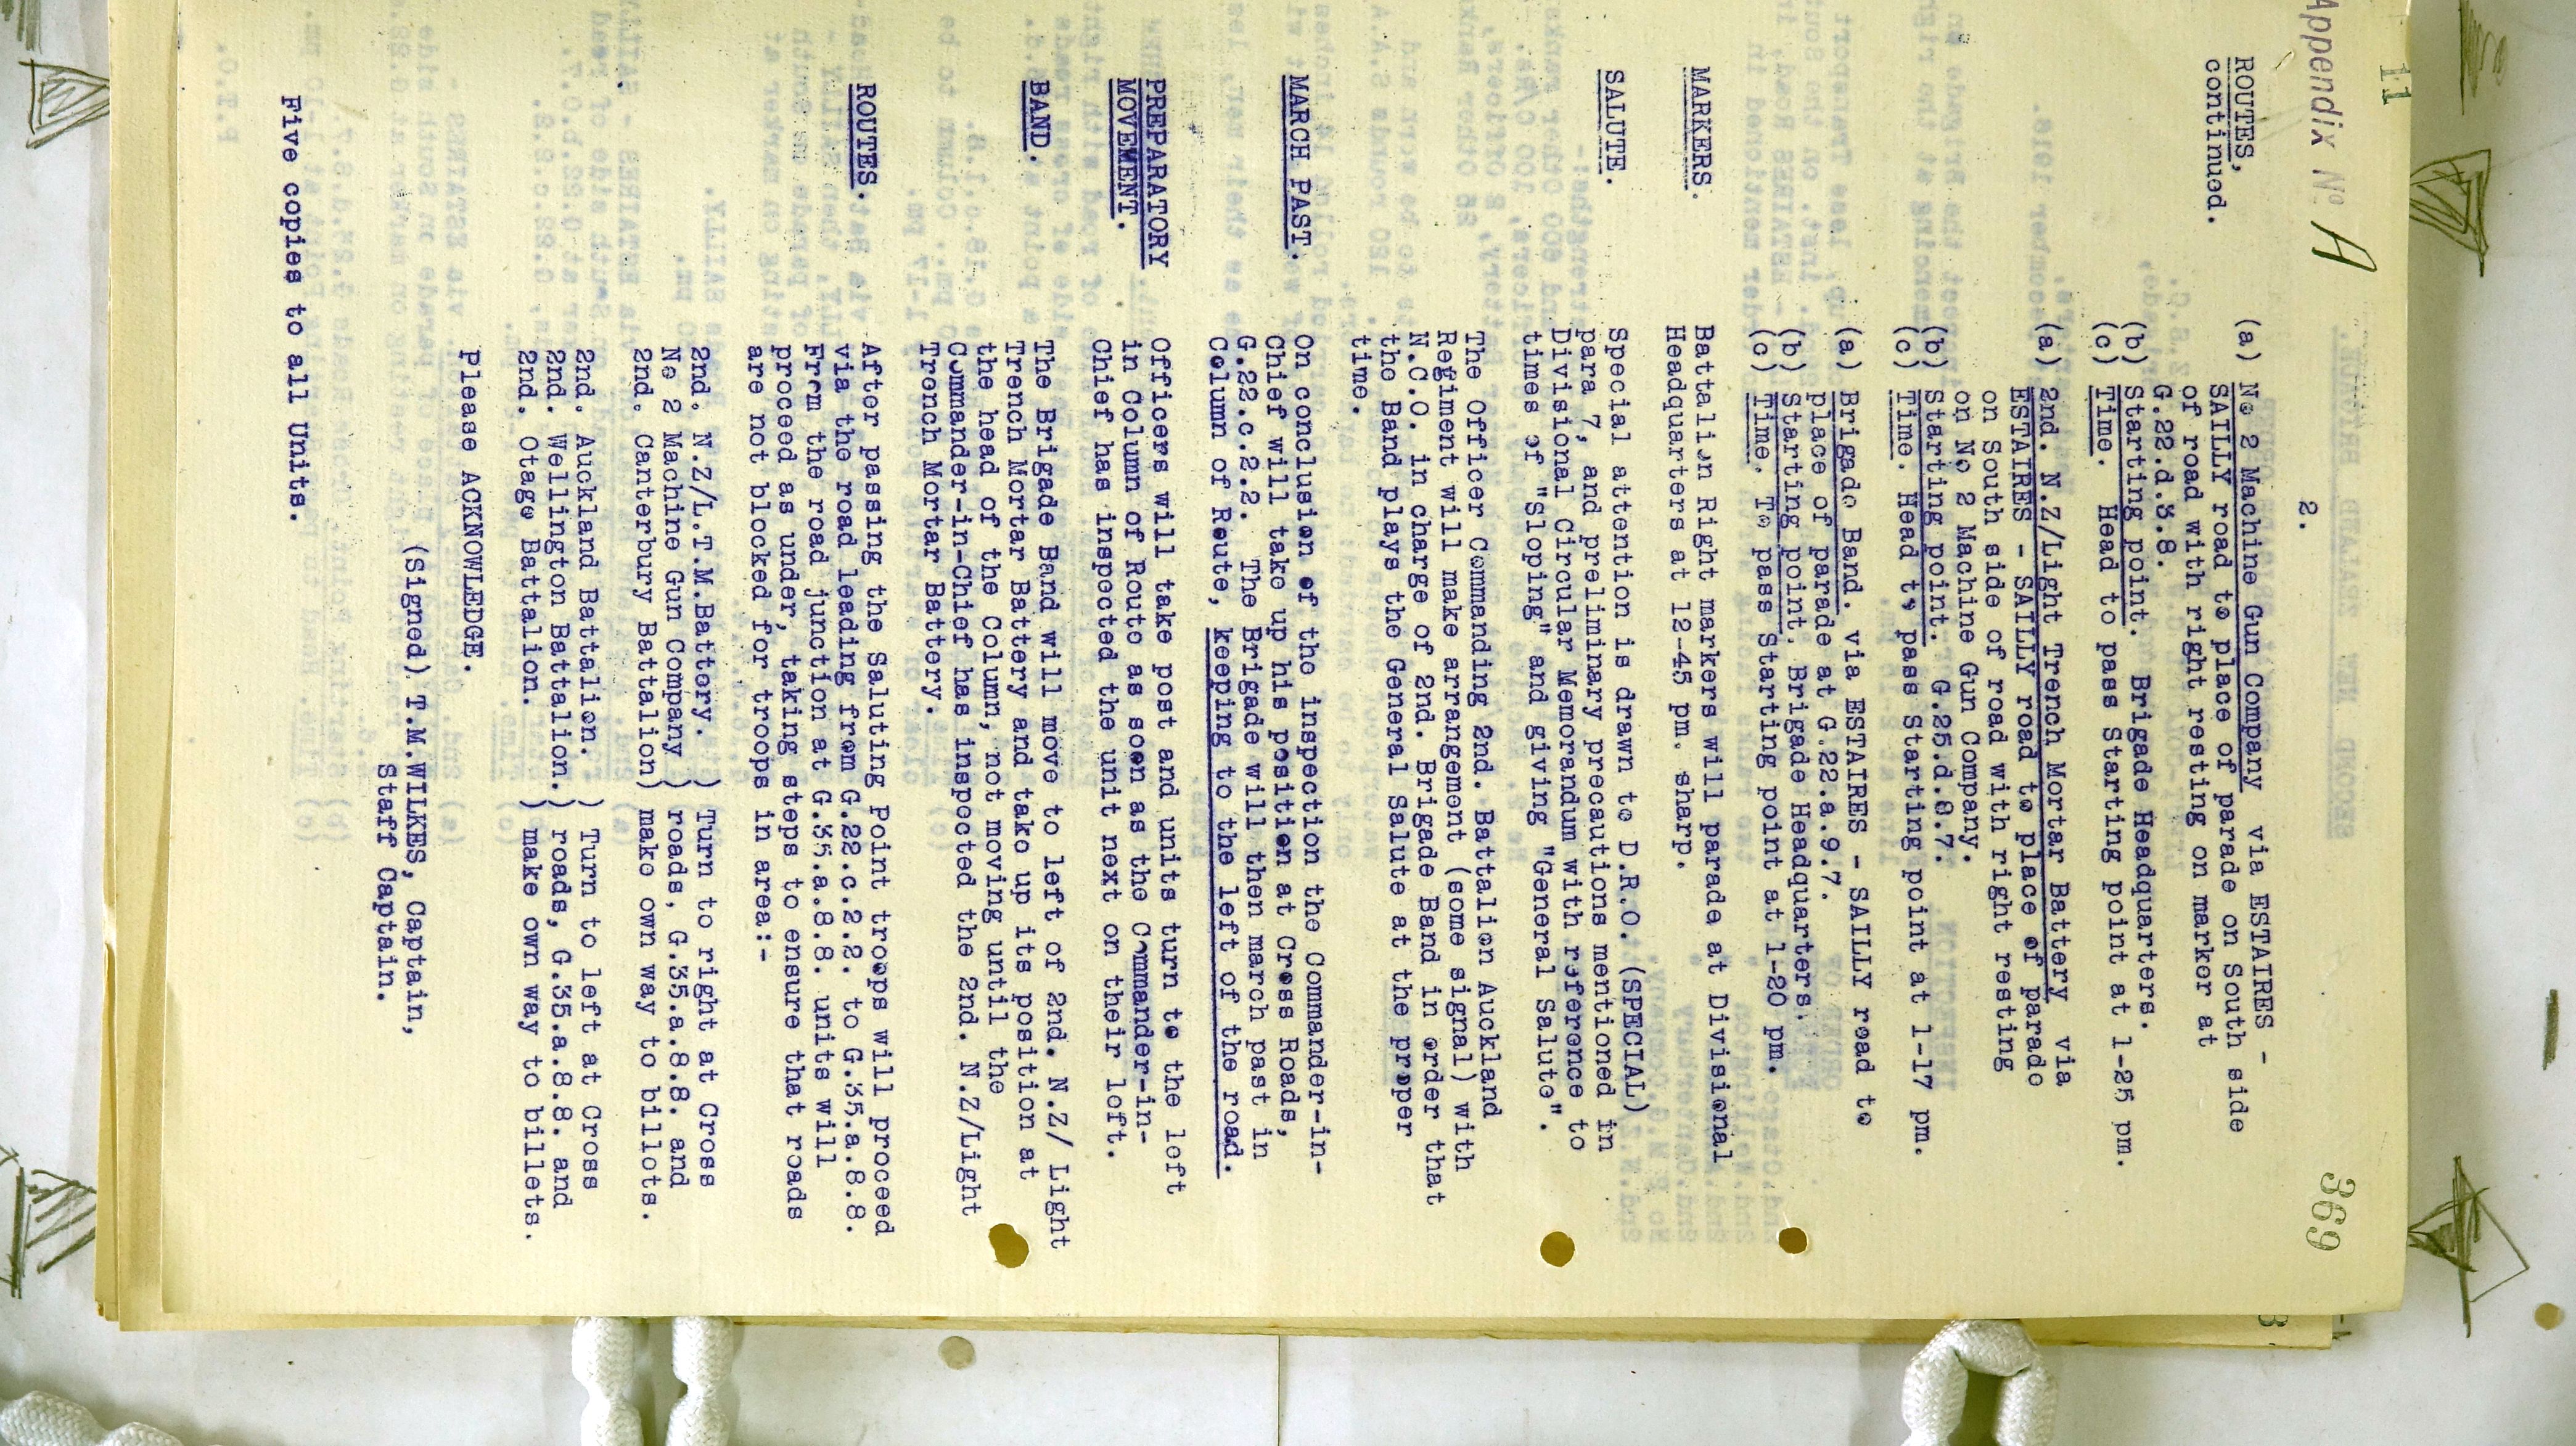 11
Appendix No A
2.
369
ROUTES,
continued.
(a) No 2 Machine Gun Company via ESTAIRES -
SAILLY road to place of parade on South side
of road with right resting on marker at
G.22.d.3.8.
(b) Starting point. Brigade Headquarters.
(c) Time. Head to pass Starting point at 1-25 pm.
(a) 2nd. N.Z/Light Trench Mortar Battery via
ESTAIRES - SAILLY road to place of parade
on South side of road with right resting
on No 2 Machine Gun Company.
(b) Starting point. G.25.d.8.7.
(c) Time. Head to pass Starting point at 1-17 pm.
(a) Brigade Band. via ESTAIRES - SAILLY road to
place of parade at G.22.a.9.7.
(b) Starting point. Brigade Headquarters.
(c) Time. To pass Starting point at 1-20 pm.
MARKERS.
Battalion Right markers will parade at Divisional
Headquarters at 12-45 pm. sharp.
SALUTE.
Special attention is drawn to D.R.O. (SPECIAL)
para 7, and preliminary precautions mentioned in
Divisional Circular Memorandum with reference to
times of "Sloping" and giving "General Salute".
The Officer Commanding 2nd. Battalion Auckland
Regiment will make arrangement (some signal) with
N.C.O. in charge of 2nd. Brigade Band in order that
the Band plays the General Salute at the proper
time.
MARCH PAST.
On conclusion of the inspection the Commander-in-
Chief will take up his position at Cross Roads,
G.22.c.2.2. The Brigade will then march past in
Column of Route, keeping to the left of the road.
PREPARATORY
MOVEMENT.
Officers will take post and units turn to the left
in Column of Route as soon as the Commander-in-
Chief has inspected the unit next on their left.
BAND.
The Brigade Band will move to left of 2nd. N.Z/ Light
Trench Mortar Battery and take up its position at
the head of the Column, not moving until the
Commander-in-Chief has inspected the 2nd. N.Z/Light
Trench Mortar Battery.
ROUTES.
After passing the Saluting Point troops will proceed
via the road leading from G.22.c.2.2. to G.35.a.8.8.
From the road junction at G.35.a.8.8. units will
proceed as under, taking steps to ensure that roads
are not blocked for troops in area:-
2nd. N.Z/L.T.M.Battery. ) Turn to right at Cross
No 2 Machine Gun Company ) roads, G.35.a.8.8. and
2nd. Canterbury Battalion) make own way to billets.
2nd. Auckland Battalion. ) Turn to left at Cross
2nd. Wellington Battalion.) roads, G.35.a.8.8. and
2nd. Otago Battalion. ) make own way to billets.
Please ACKNOWLEDGE.
(Signed) T.M.WILKES, Captain,
Staff Captain.
Five copies to all Units.